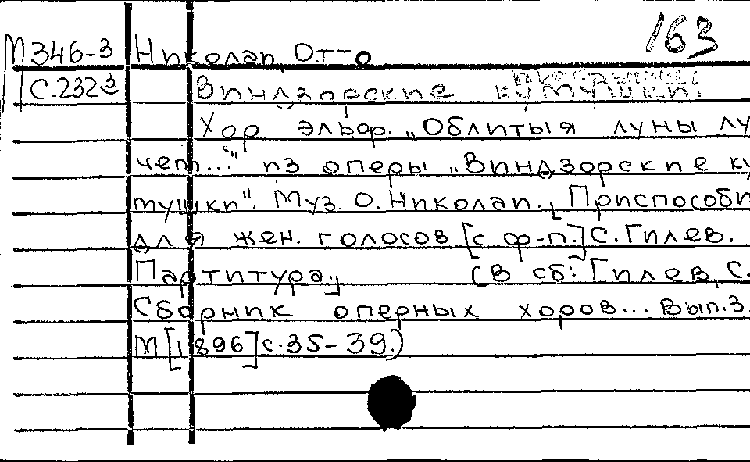 163
М346-3 Николаи, Отто
С.232 Виндзорские кумушки.
Хор эльфр. „Облитыя луны лу
чем..." из оперы „Виндзорские ку
мушки". Муз. О. Николаи. Приспособи
для жен. голосов [с ф-п.] С. Гилев.
Партитура. (В сб: Гилев, С.
Сборник оперных хоров... Вып. 3.
М [1896] с. 35-39.)